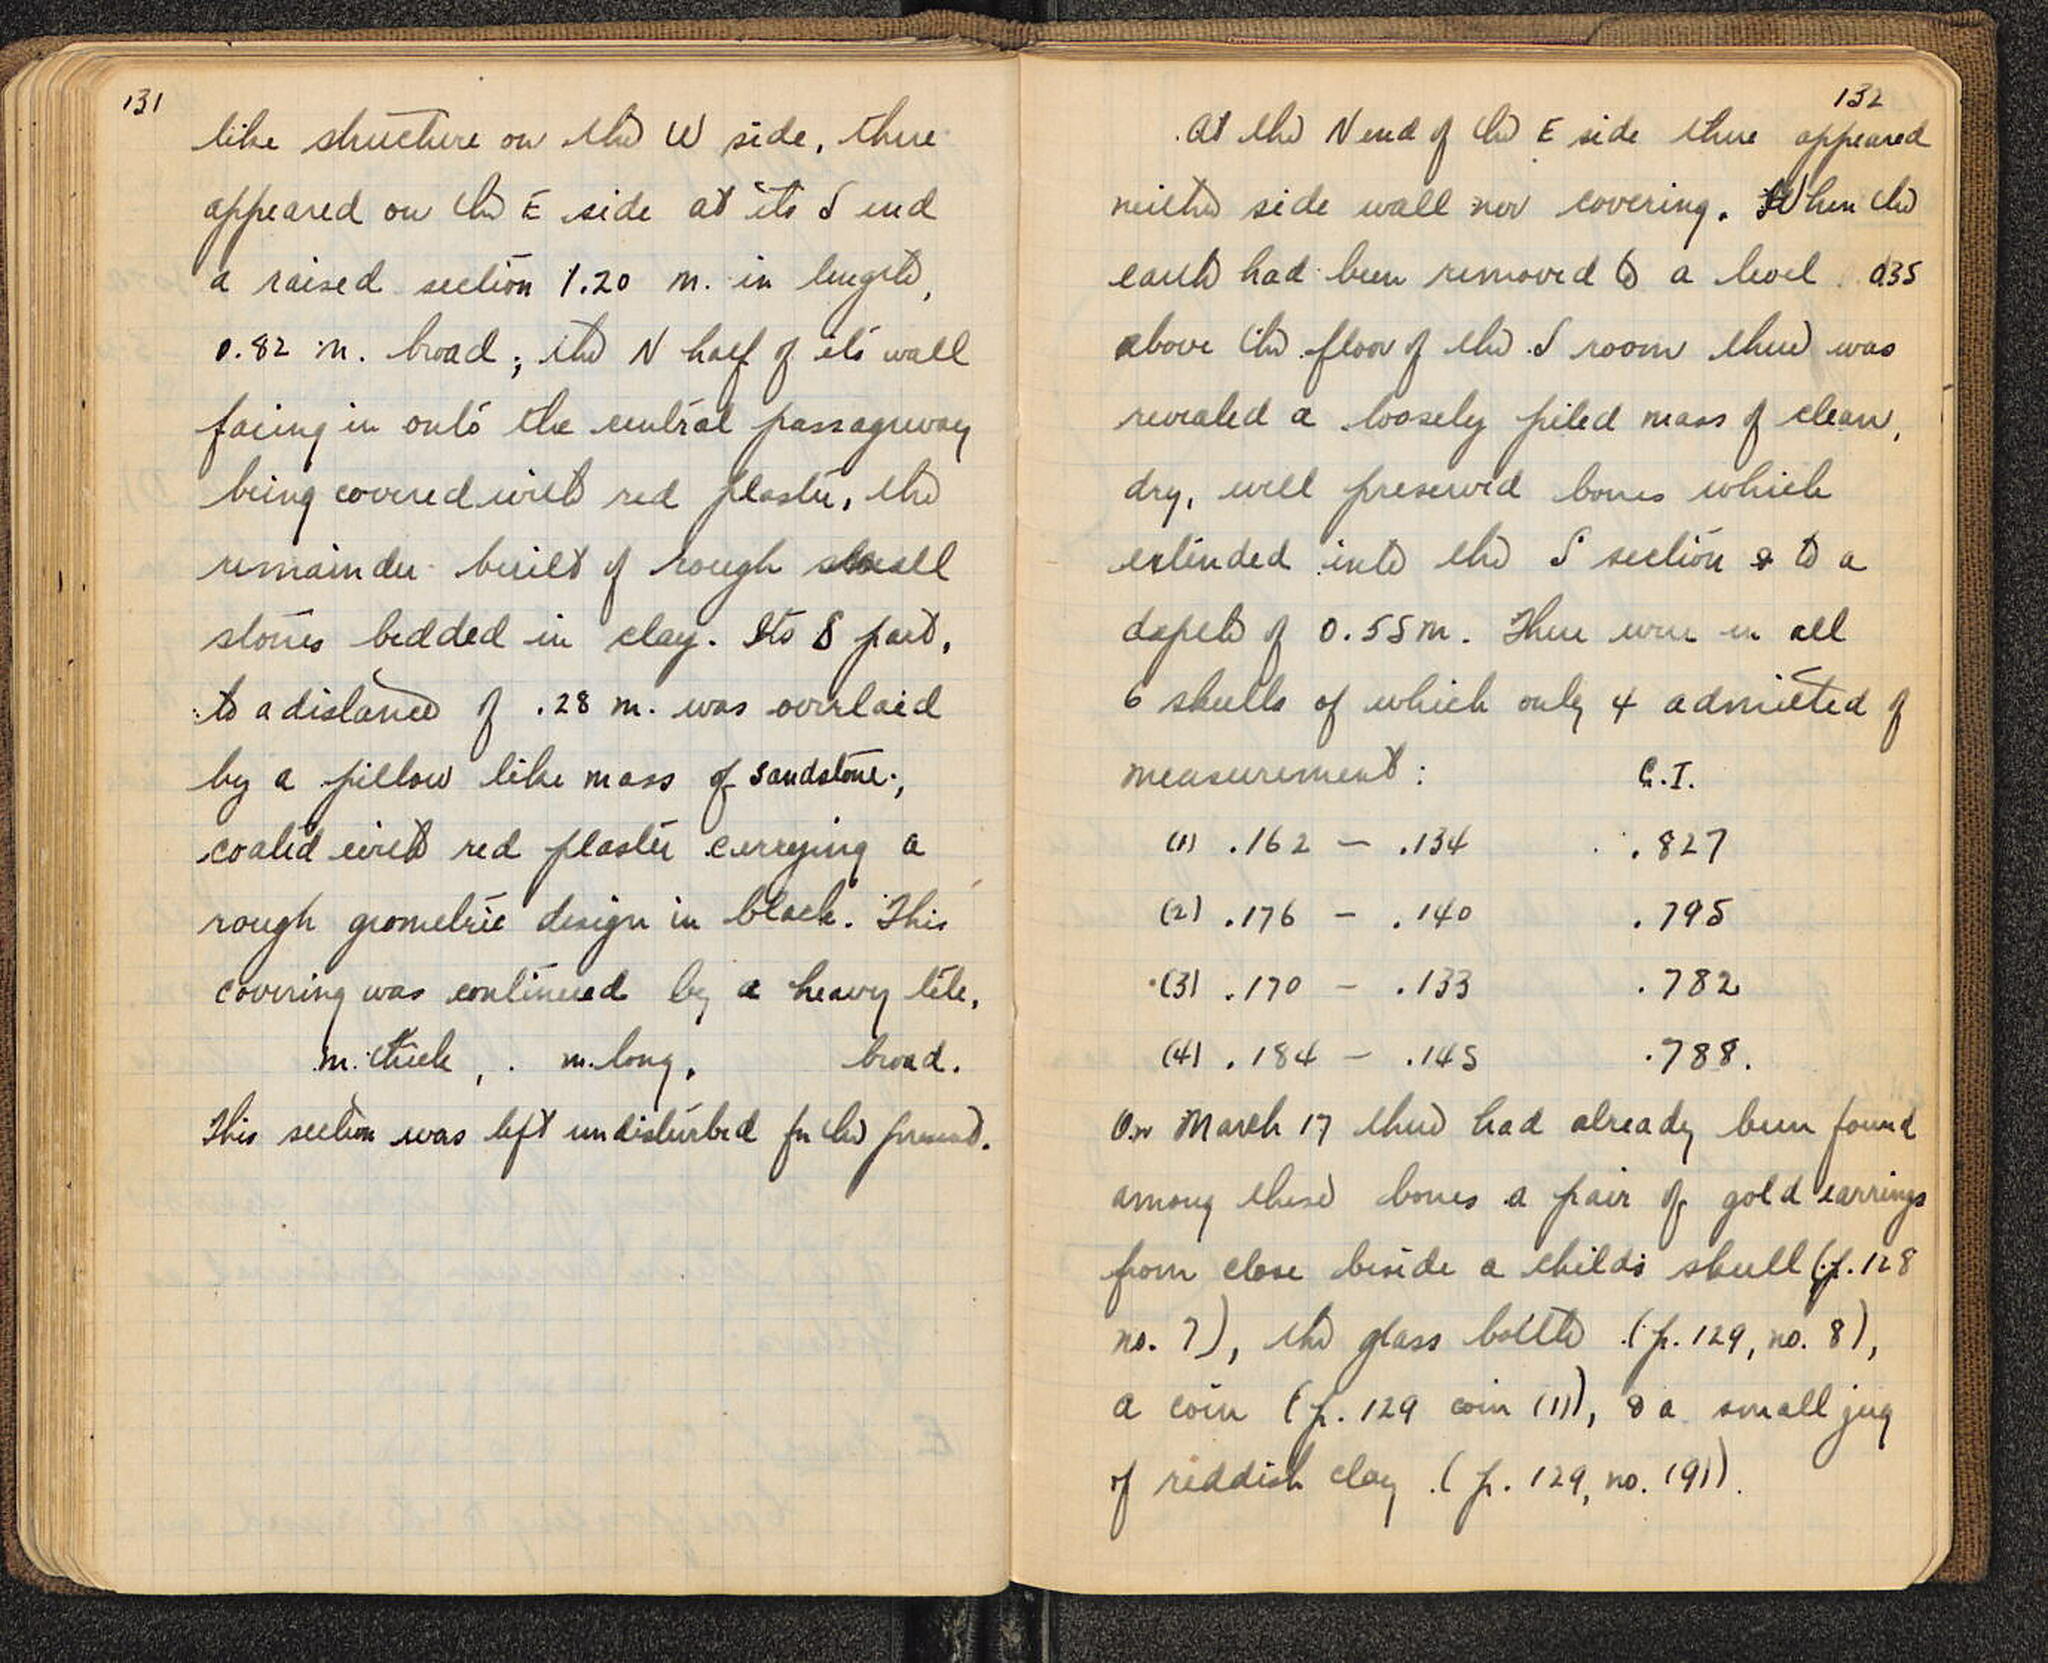 131
like structure on the W side, there
appeared on the E side at its S end
a raised section 1.20 m. in length,
0.82 m. broad; the N half of its wall
facing in onto the central passageway
being covered with red plaster, the
remainder built of rough small
stones bedded in clay. Its S part,
to a distance of .28 m. was overlaid
by a pillow like mass of sandstone,
coated with red plaster carrying a
rough geometric design in black. This
covering was continued by a heavy tile,
m. thick, . m. long, broad.
This section was left undisturbed for the present.
132
At the N end of the E side there appeared
neither side wall nor covering. When the
earth had been removed to a level 0.35
above the floor of the S room there was
revealed a loosely piled mass of clean,
dry, well preserved bones which
extended into the S section & to a
depth of 0.55 m. There were in all
6 skulls of which only 4 admitted of
measurement: C.I.
(1) .162 — .134 .827
(2) .176 — .140 .795
(3) .170 — .133 .782
(4) .184 — .145 .788.
On March 17 there had already been found
among these bones a pair of gold earrings
from close beside a childs skull (p. 128
no. 7), the glass bottle (p. 129, no. 8),
a coin (p. 129 coin (1)), & a small jug
of reddish clay (p. 129, no. (9)).